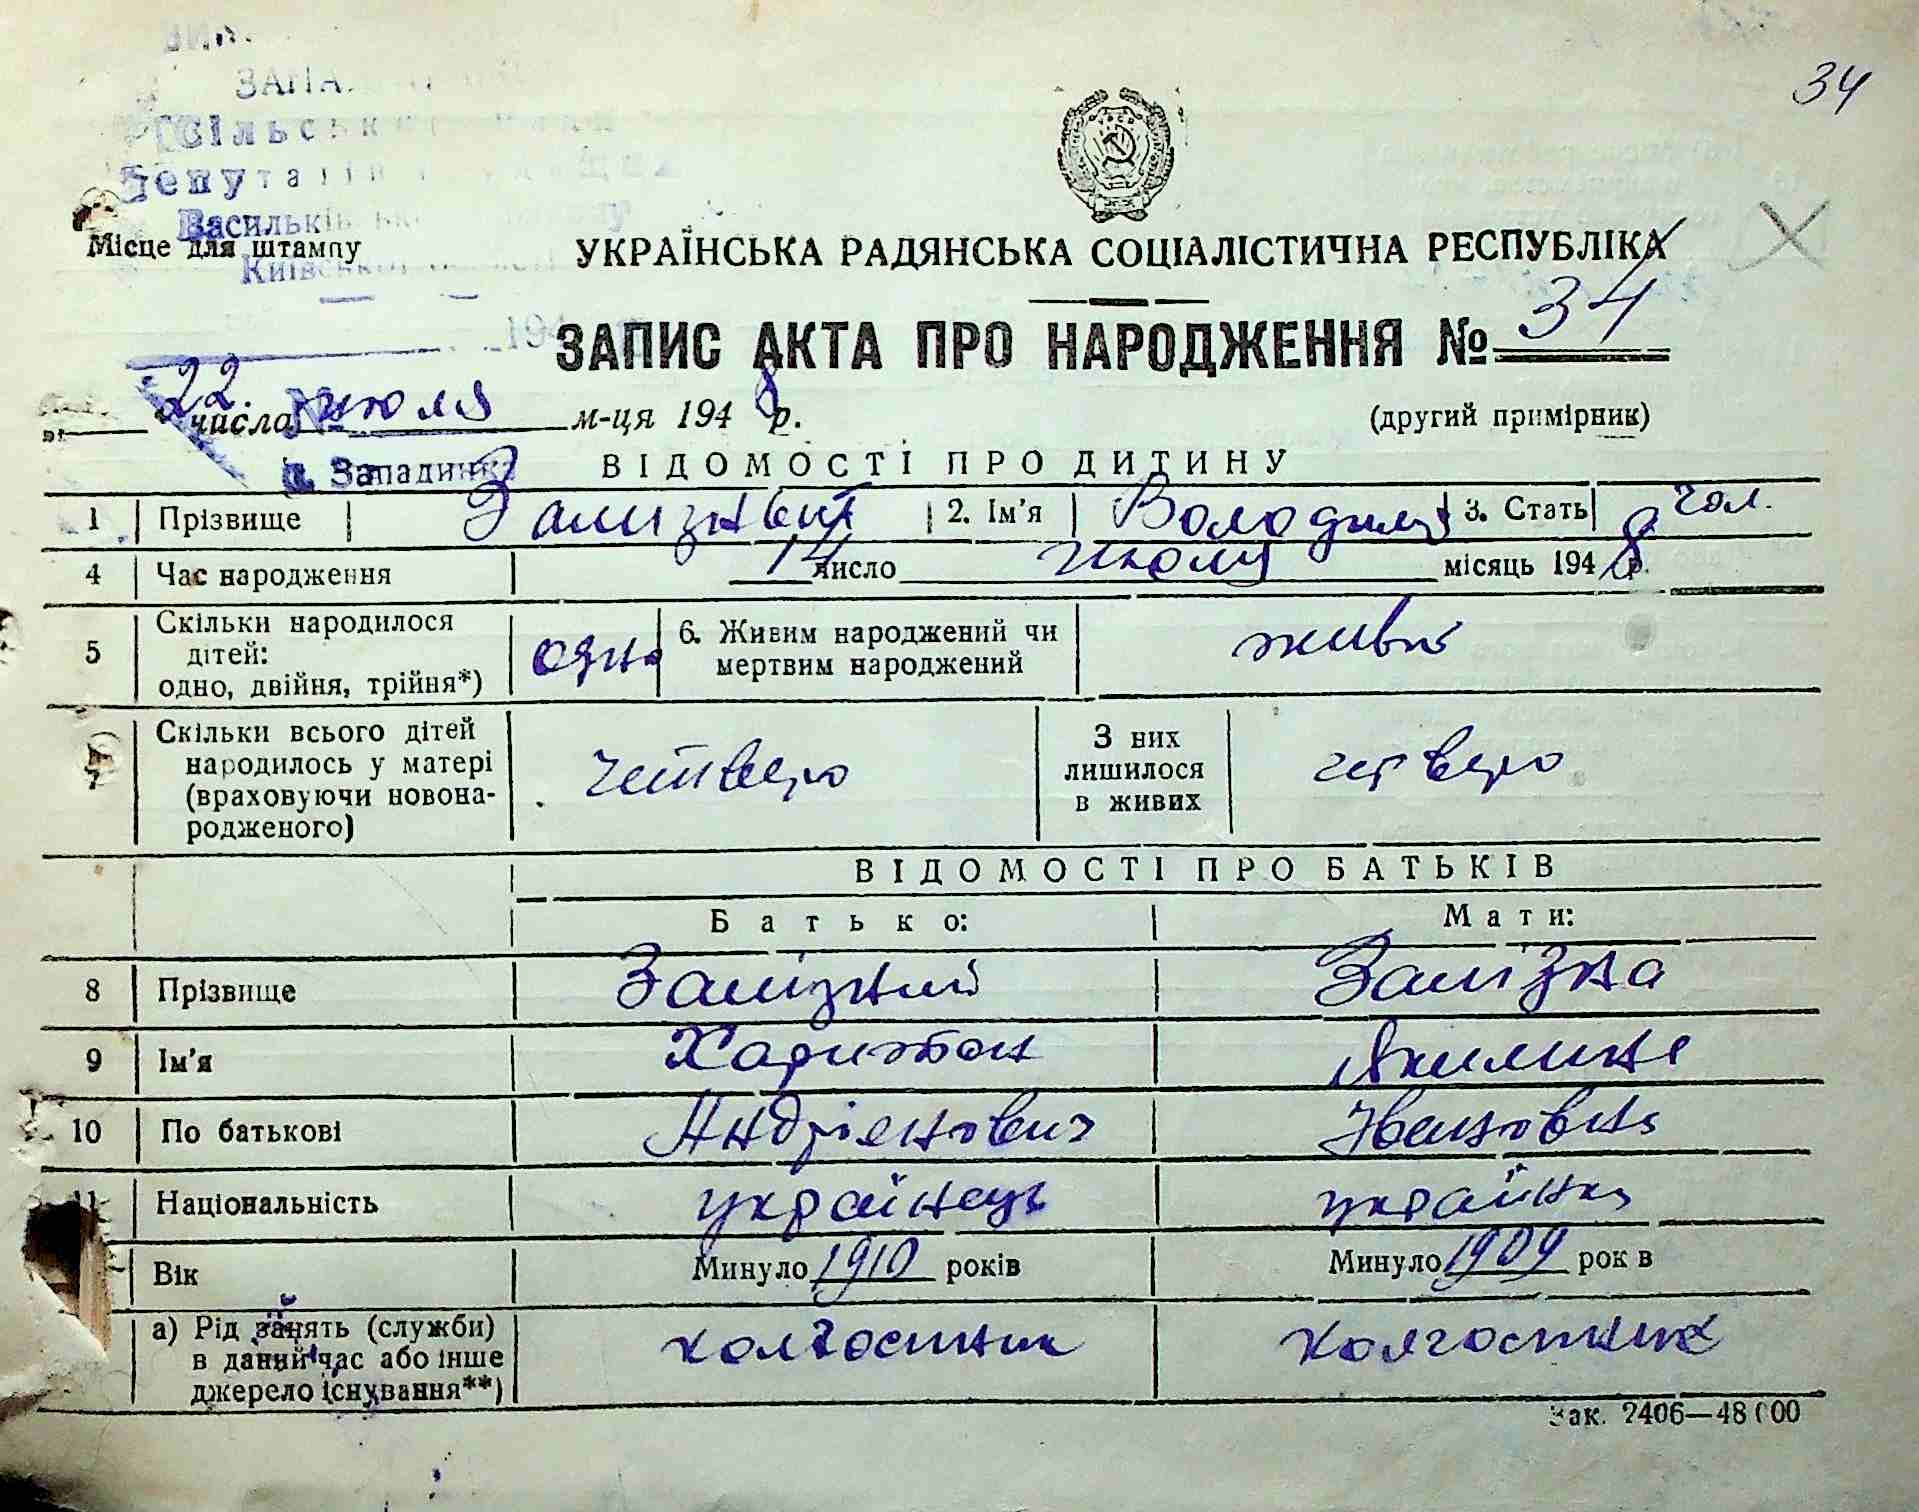 34
ЗАПА
Сільськ
Депутатів
Васильків
Місце для штампу
Київськ
УКРАЇНСЬКА РАДЯНСЬКА СОЦІАЛІСТИЧНА РЕСПУБЛІКА
ЗАПИС АКТА ПРО НАРОДЖЕННЯ № 34
22 числа июля м-ця 1948 р.
(другий примірник)
с. Западинка
ВІДОМОСТІ ПРО ДИТИНУ
1 Прізвище Зализний 2. Ім'я Володимир 3. Стать чол.
4 Час народження 14 число июля місяць 1948 р.
5 Скільки народилося дітей: одно, двійня, трійня*) одно 6. Живим народжений чи мертвим народжений живим
7 Скільки всього дітей народилось у матері (враховуючи новонародженого) четверо З них лишилося в живих четверо
ВІДОМОСТІ ПРО БАТЬКІВ
Батько: Мати:
8 Прізвище Залізний Залізна
9 Ім'я Харитон Якилина
10 По батькові Андріянович Ивановна
11 Національність українець українка
Вік Минуло 1910 років Минуло 1909 років
а) Рід занять (служби) в даний час або інше джерело існування**) колгоспник колгоспниця
Зак. 2406—48000